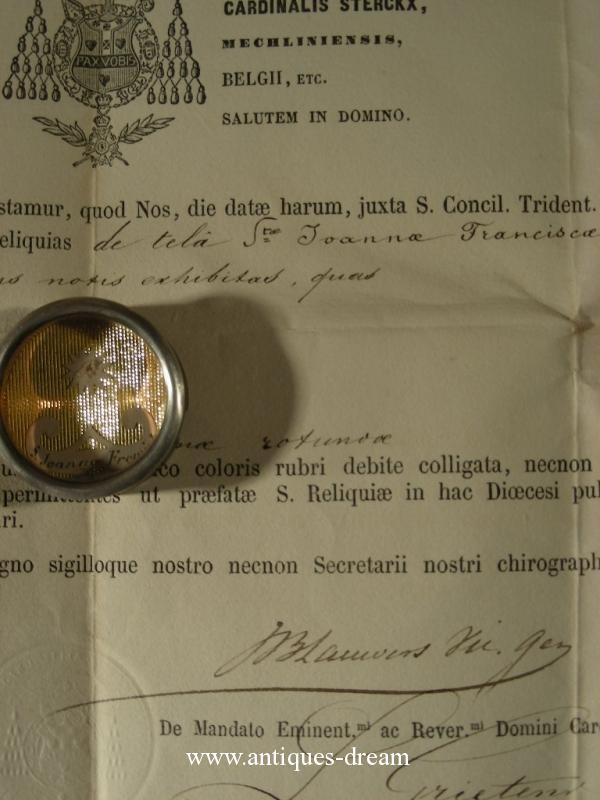 CARDINALIS STERCKX,
MECHLINIENSIS,
PAX VOBIS
BELGII, ETC.
SALUTEM IN DOMINO.
stamur, quod Nos, die datæ harum, juxta S. Concil. Trident.
eliquias de telâ Stæ Joannæ Franciscæ
notis exhibitas, quas
rotundæ
S. Joanna
co coloris rubri debite colligata, necnon
permittentes ut præfatæ S. Reliquiæ in hac Diœcesi pu
ri.
gno sigilloque nostro necnon Secretarii nostri chirograph
JB Lauwers Vic. Gen
De Mandato Eminent.mi ac Rever.mi Domini Car
www.antiques-dream